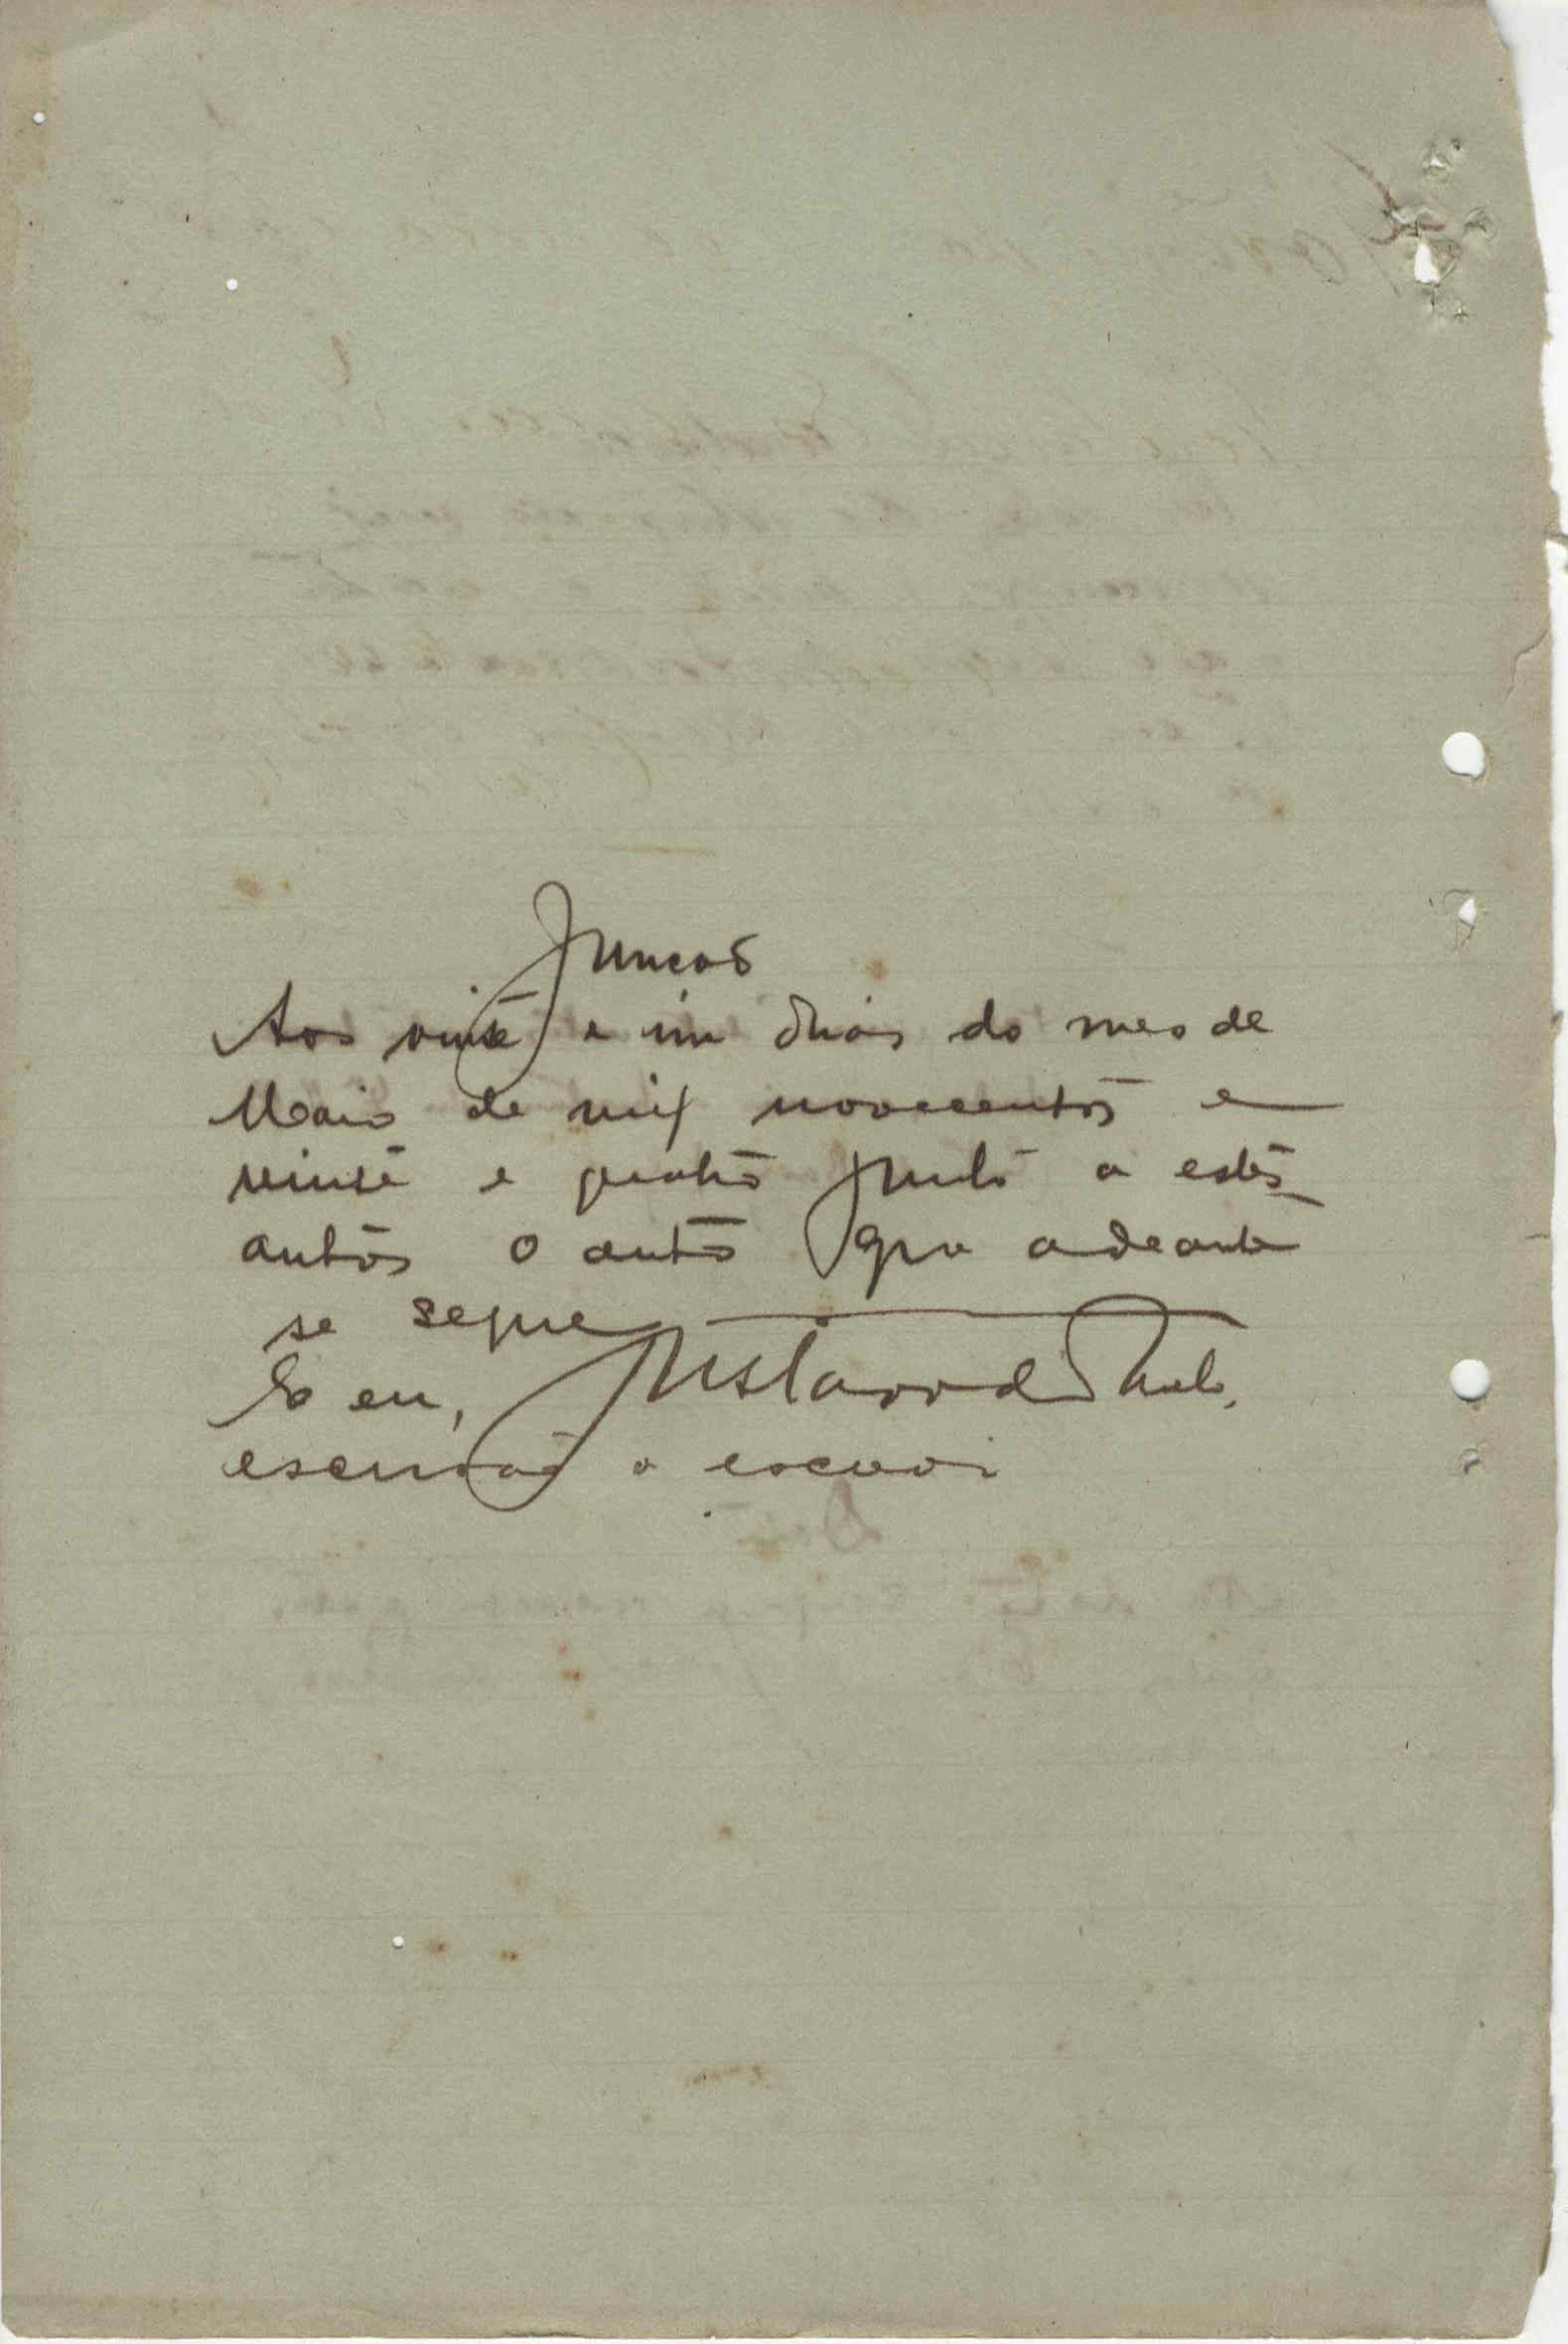 Juncas
Aos vinte e um dias do mes de
Maio de mil novecentos e
vinte e quatro junto a estes
autos o auto que adeante
se segue
E eu,
escrivão o escrevi